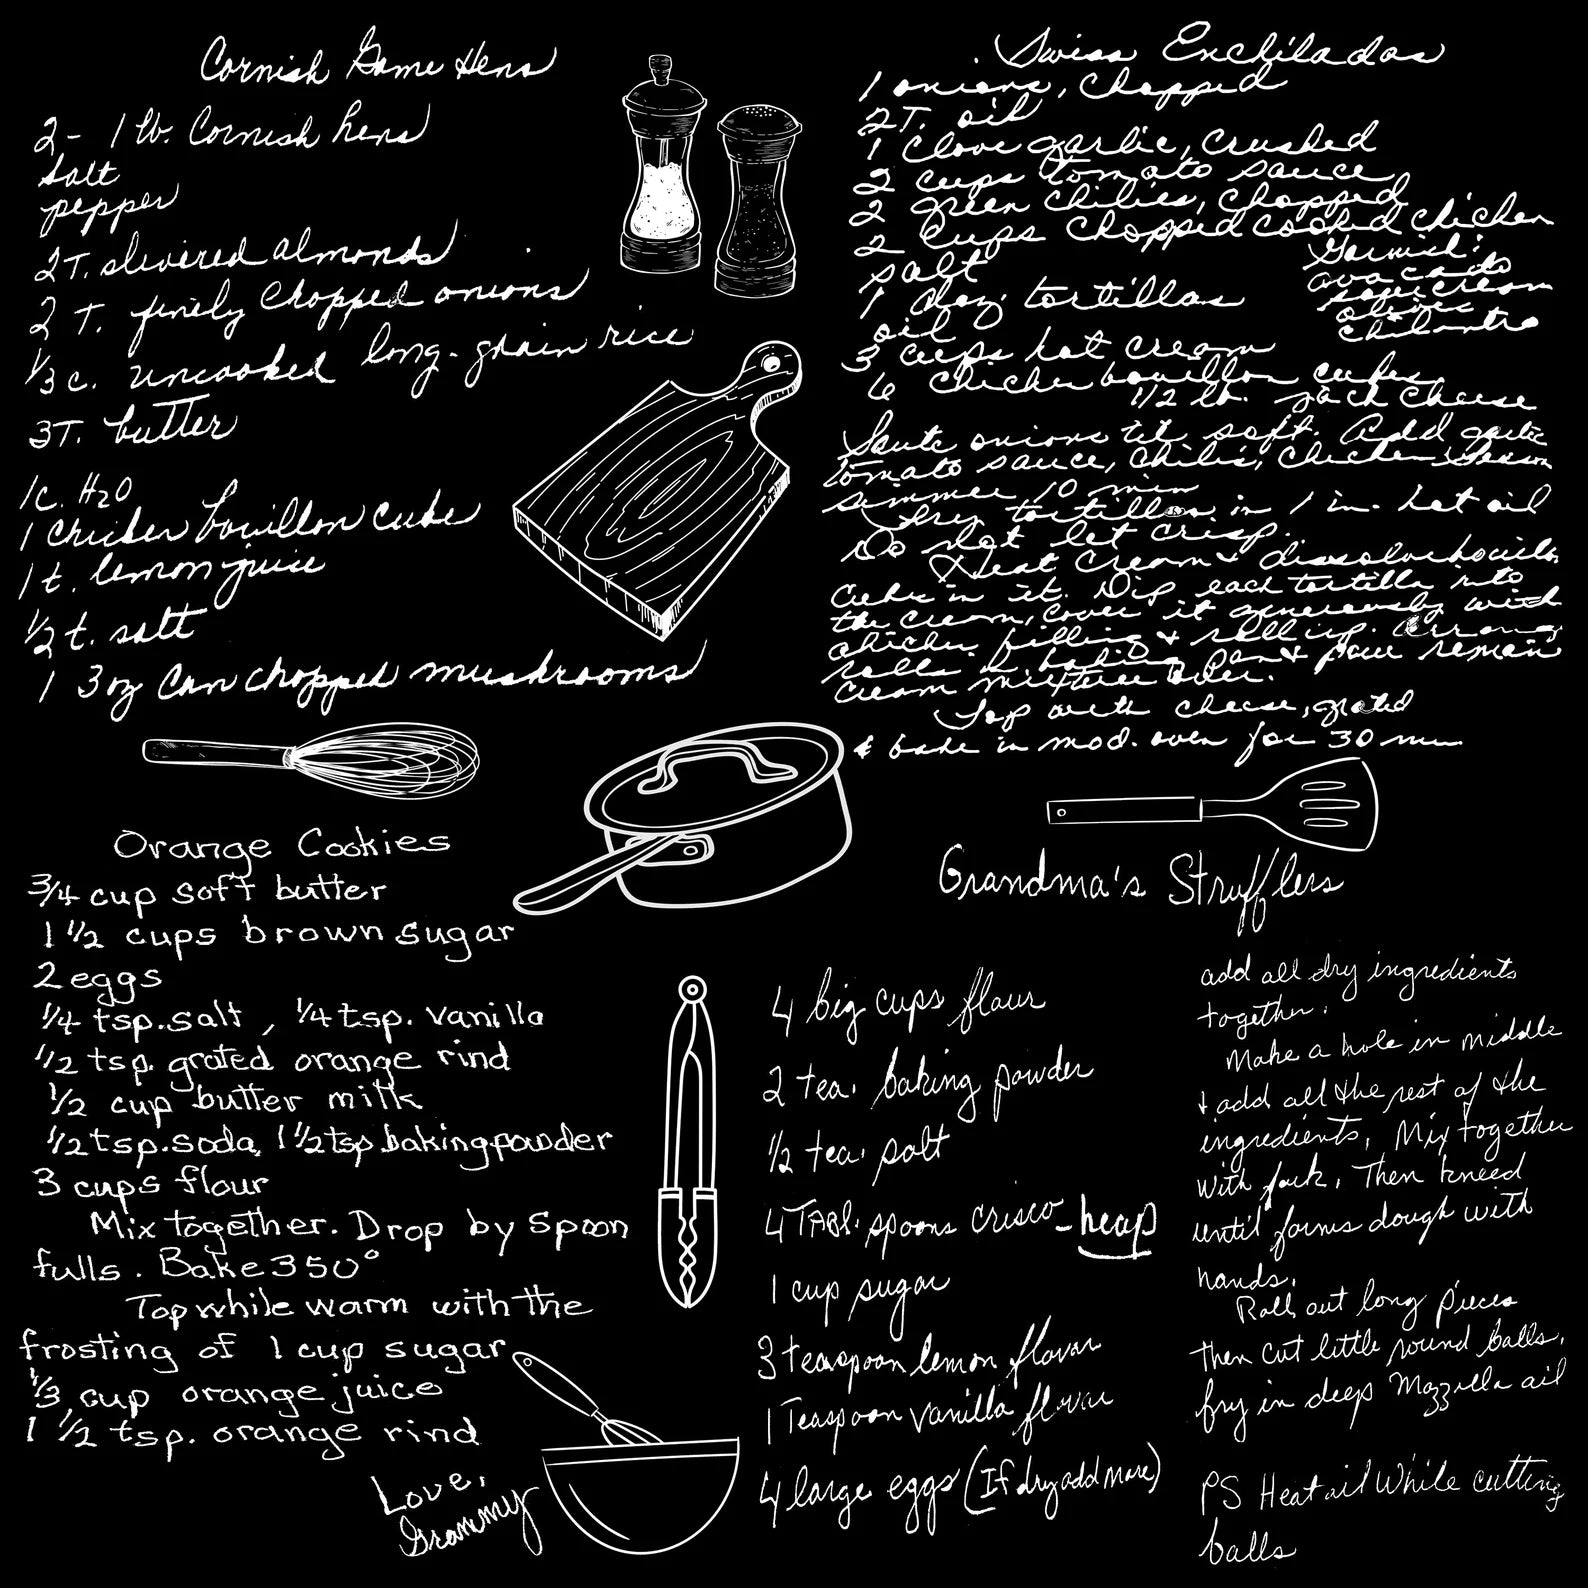 Cornish Game Hens
2 - 1 lb. Cornish hens
Salt
pepper
2 T. slivered almonds
2 T. finely chopped onions
1/3 c. uncooked long-grain rice
3T. butter
1c. H2O
1 chicken bouillon cube
1 t. lemon juise
1/2 t. salt
1 3 oz can chopped mushrooms
Swiss Enchiladas
1 onions, chopped
2T. oil
1 clove garlic, crushed
2 cups tomato sauce
2 green chilies, chopped
2 cups chopped cooked chicken
salt
1 doz. tortillas
oil
3 cups hot cream
6 chicken bouillon cubes
1/2 lb. jack cheese
Garnish:
avacado
sour cream
olives
chilantro
Saute onions til soft. Add garlic
tomato sauce, chilis, chicken. Season
simmer 10 min
Fry tortillas in 1 in. hot oil
Do not let crisp.
Heat cream & dissolve bouillon
cubes in it. Dip each tortilla into
the cream, cover it generously with
chicken filling & roll up. Arrange
rolls in baking pan & pour remain
cream mixture over.
Top with cheese, grated
& bake in mod. oven for 30 min
Orange Cookies
3/4 cup soft butter
1 1/2 cups brown sugar
2 eggs
1/4 tsp. salt, 1/4 tsp. vanilla
1/2 tsp. grated orange rind
1/2 cup butter milk
1/2 tsp. soda, 1 1/2 tsp baking powder
3 cups flour
Mix together. Drop by spoon
fulls. Bake 350°
Top while warm with the
frosting of 1 cup sugar
1/3 cup orange juice
1 1/2 tsp. orange rind
Love,
Grammy
Grandma's Strufflers
4 big cups flour
2 tea. baking powder
1/2 tea. salt
4 TABL. spoons crisco - heap
1 cup sugar
3 teaspoon lemon flavor
1 Teaspoon vanilla flavor
4 large eggs (If dry add more)
add all dry ingredients
together.
Make a hole in middle
& add all the rest of the
ingredients, Mix together
with fork. Then kneed
until forms dough with
hands.
Roll out long pieces
then cut little round balls.
fry in deep Mozzella oil
PS Heat oil While cutting
balls